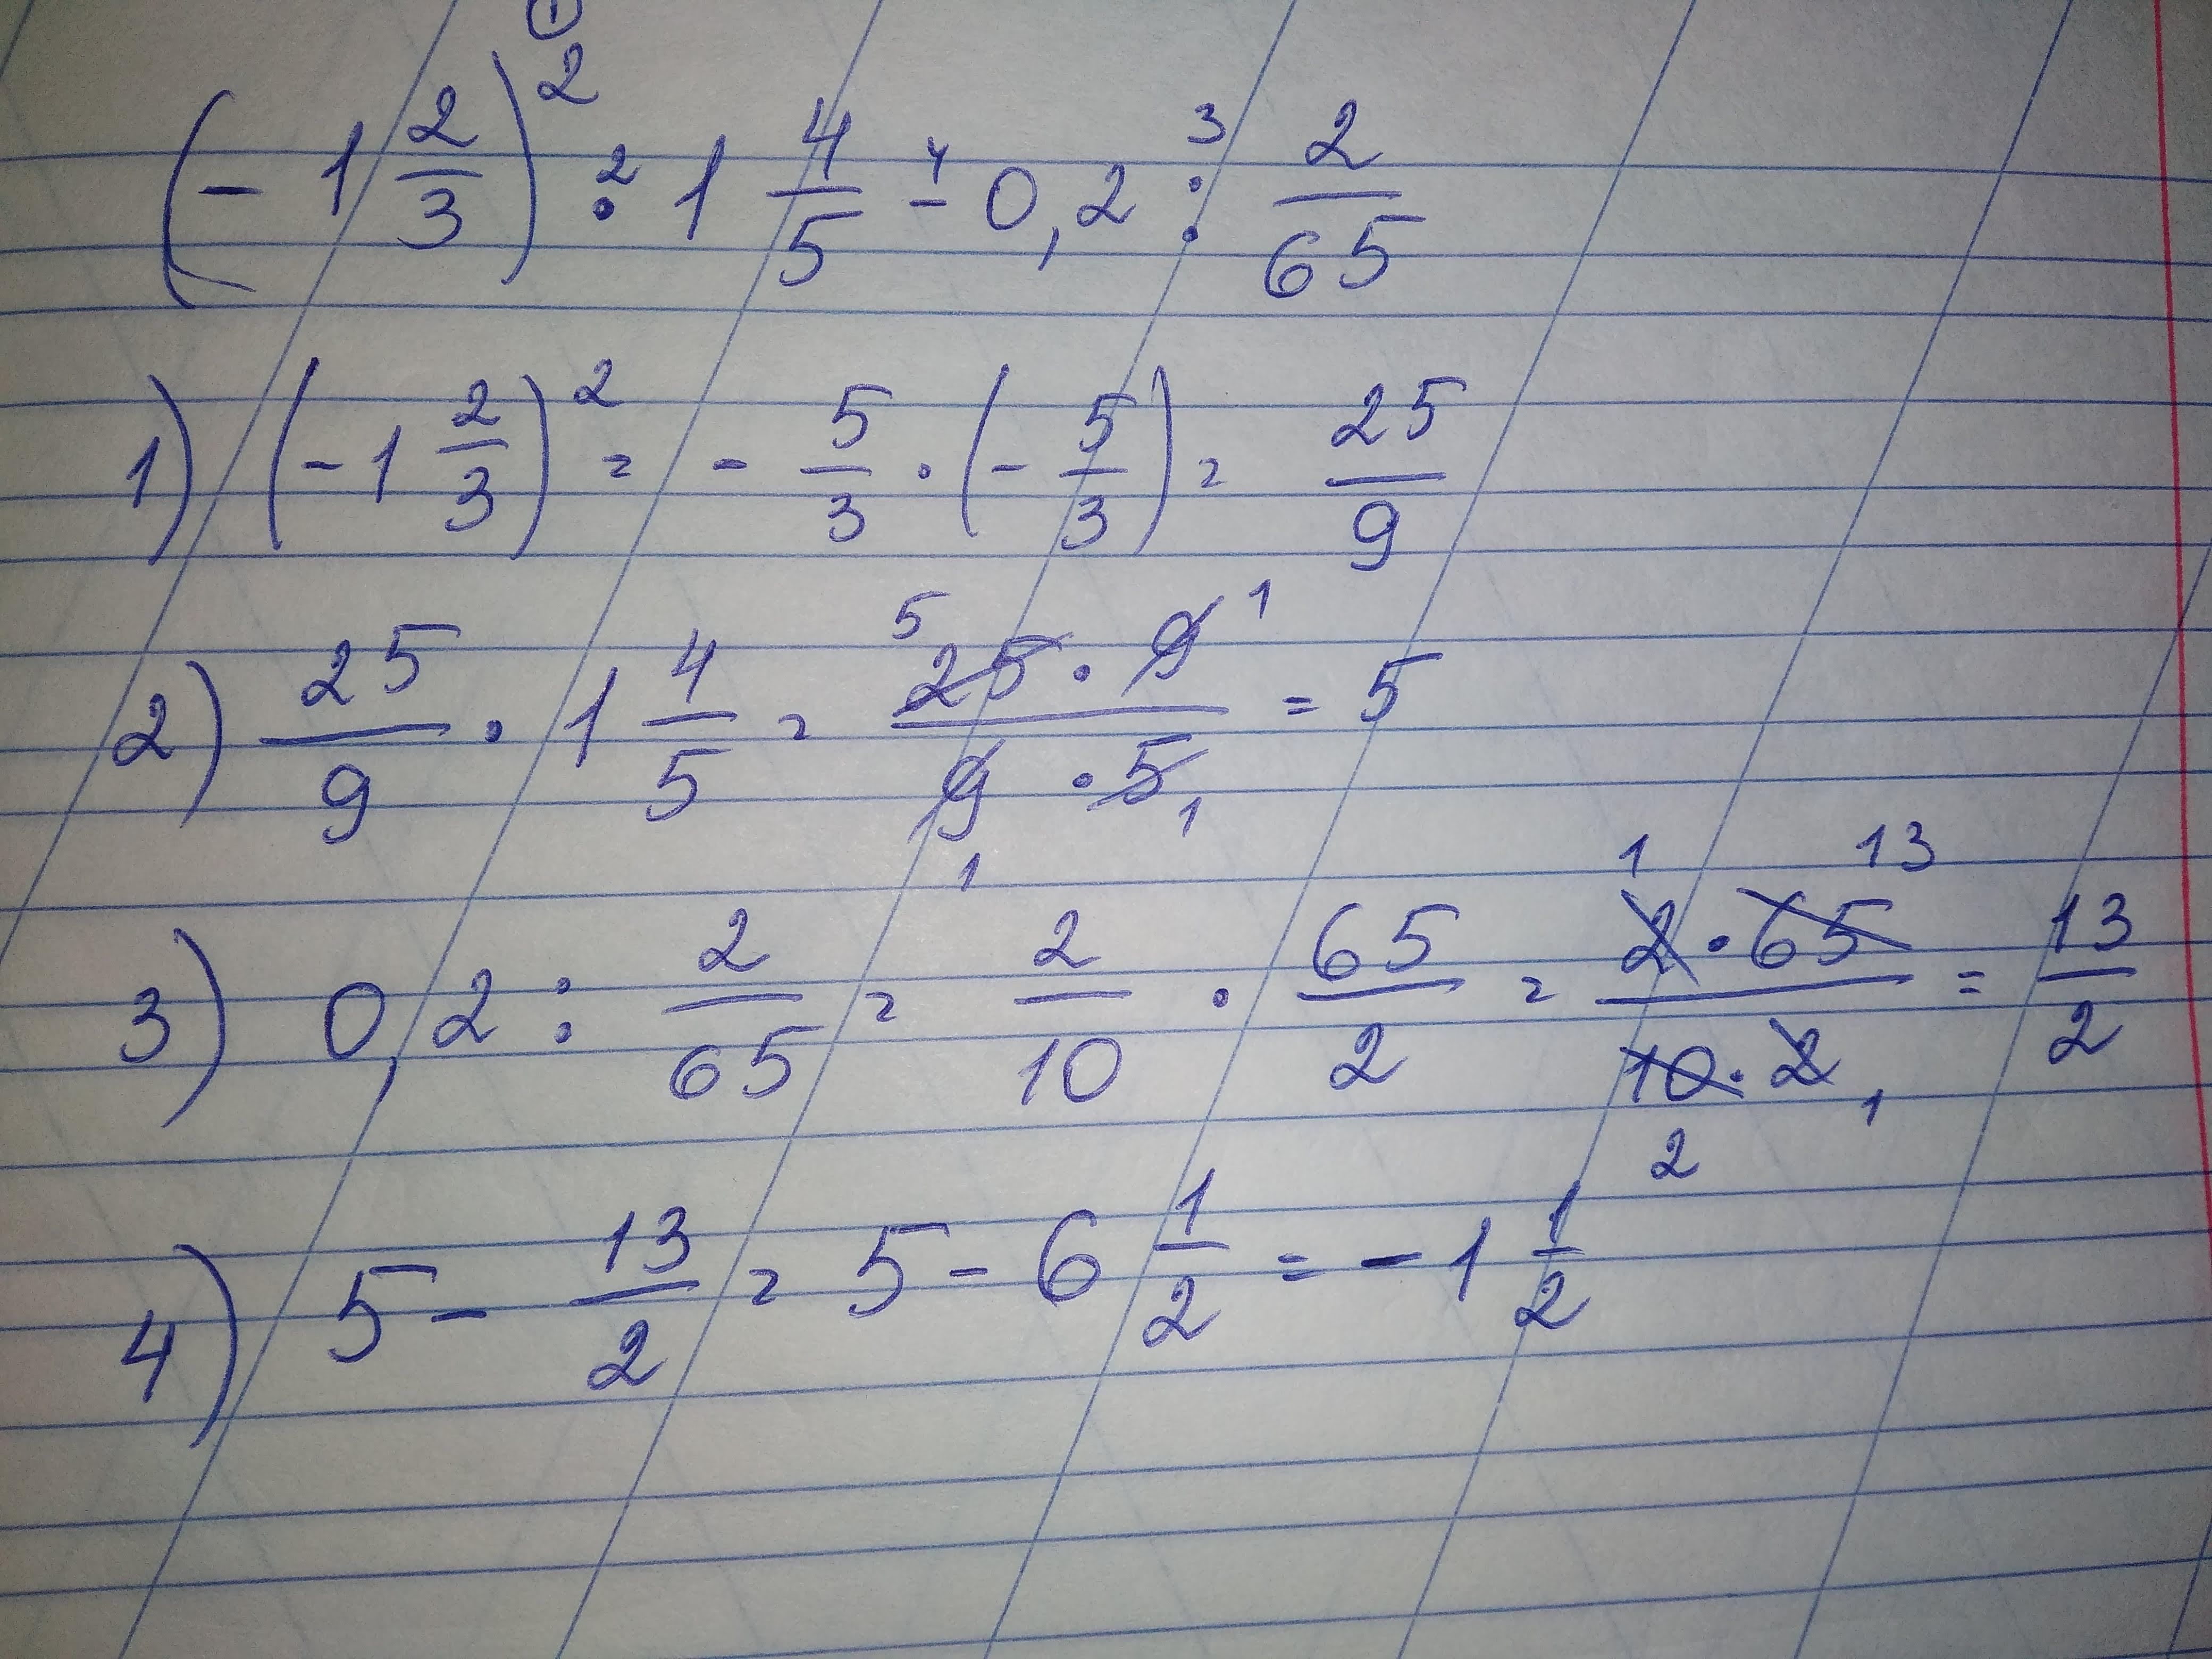 (-1 2/3)² : 1 4/5 - 0,2 : 2/65
1) (-1 2/3)² = - 5/3 · (- 5/3) = 25/9
2) 25/9 · 1 4/5 = 25 · 9 / 9 · 5 = 5
3) 0,2 : 2/65 = 2/10 · 65/2 = 2 · 65 / 10 · 2 = 13/2
4) 5 - 13/2 = 5 - 6 1/2 = -1 1/2